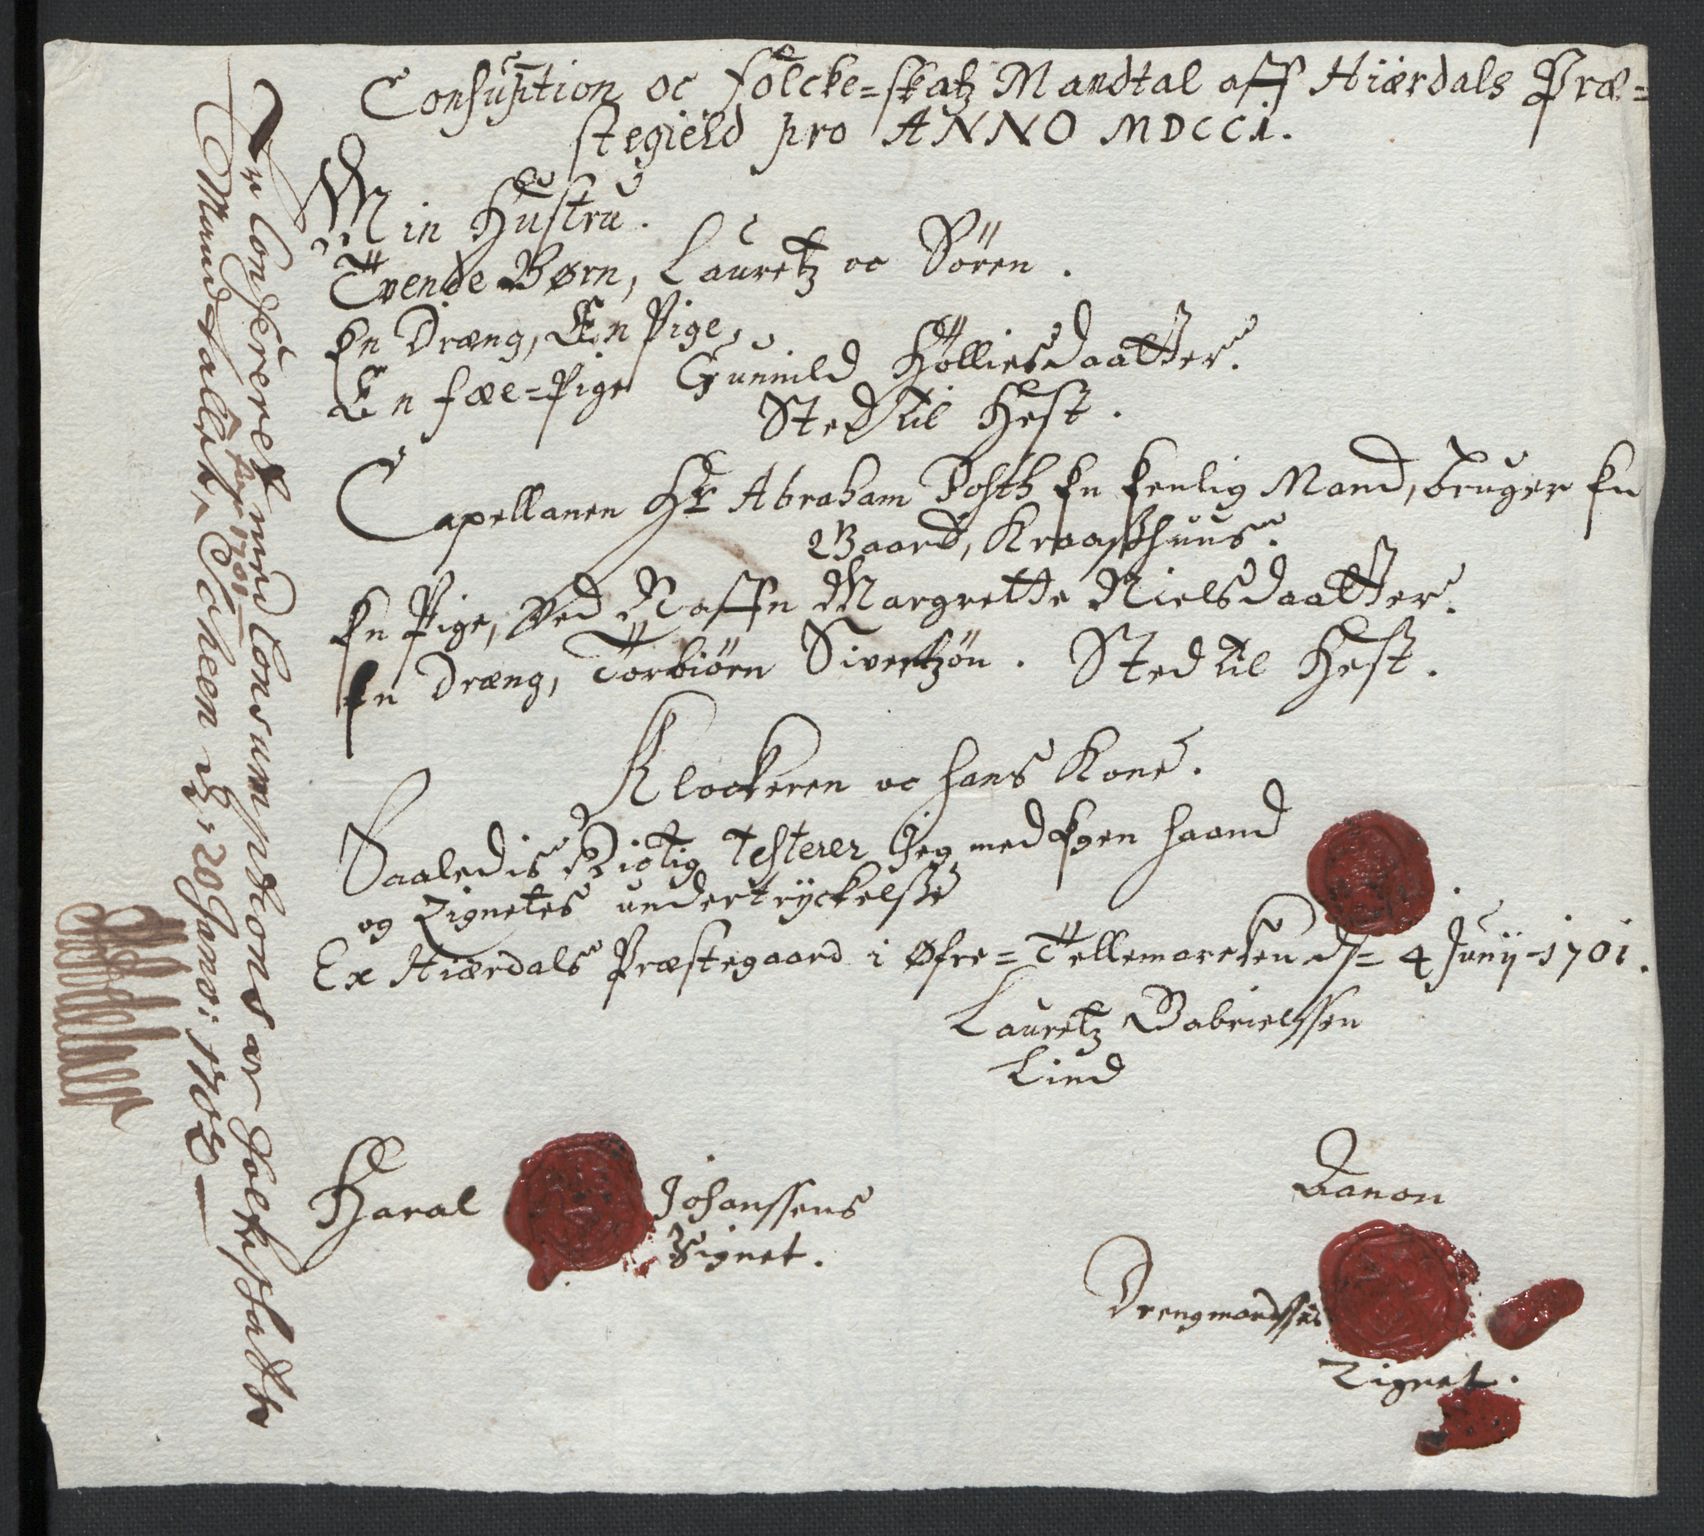 Consuption oc folcke=skatz Mandtal aff Hiærdals Præ=
stegield pro ANNO MDCCI.
Min Hustru.
Tvende Børn, Lauretz oc Sören.
En Dræng, En Pige,
En fæe=Pige Gunnild Hölliesdaatter.
Sted til Hest.
Capellanen Hr Abraham Posth En Eenlig Mand, bruger En
Gaard, Kraasshuus.
En Pige, ved Naffn Margrette Nielsdaatter.
En Dræng, Torbiörn Sivertzön. Sted til Hest.
Klockeren oc hans Kone.
Saaledis Rigtig testerer Jeg med Egen haand
og Zignetes undertryckelsse
Ex Hiærdals Præstegaard i Øfre=Tellemarcken d= 4 Junij 1701.
Lauretz Gabrielssen
Lind
Haral Johanssens
Zignet.
Aanon
Drengmandssøns
Zignet.
Er Confereret med Consumptions ær folkeschatte
Mandtallet for 1701 Scheen d: 20 Janv: 1702